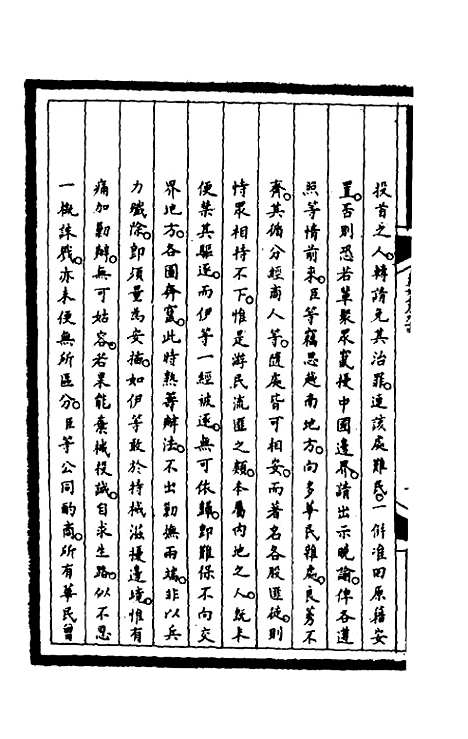 投首之人。轉請免其治罪。連該處難民。一併准田原籍安
置。否則恐若輩聚眾竄擾中國邊界。請出示曉諭。俾各遵
照等情前來。臣等竊思越南地方。向多華民雜處。良莠不
齊。其循分經商人等。隨處皆可相安。而著名各股匪徒。則
恃眾相持不下。惟是游民流匪之類。本屬內地之人。既未
便禁其驅逐。而伊等一經被逐。無可依歸。即難保不向交
界地方。各圖奔竄。此時熟籌辦法。不出勦撫兩端。非以兵
力殲除。即須量為安插。如伊等敢於恃械滋擾邊境。惟有
痛加勦辦。無可姑容。若果能棄械投誠。自求生路。似不忍
一概誅戮。亦未便無所區分。臣等公同酌商。所有華民曾